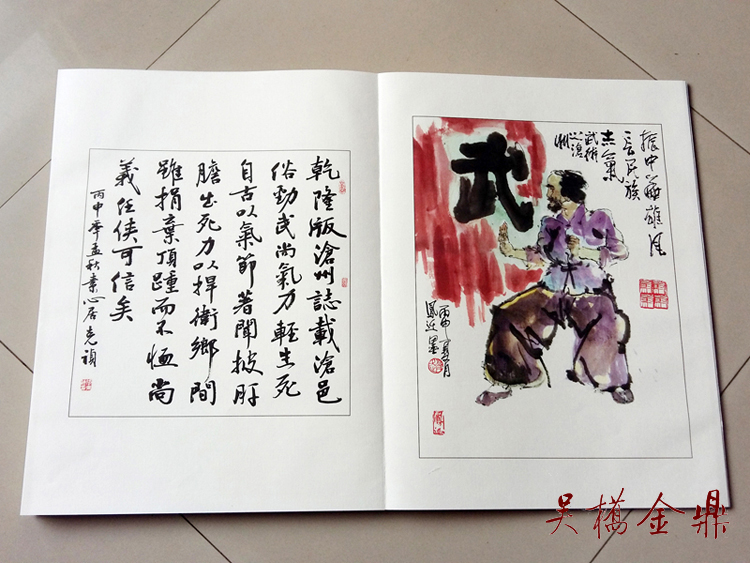 乾隆版滄州誌載滄邑
俗勁武尚氣力輕生死
自古以氣節著聞披肝
膽出死力以捍衛鄉間
雖捐葉頂踵而不恤尚
義任俠可信矣
丙申年孟秋素心居克
振中華雄風
長民族
志氣
武術
之滄
州
武
丙申夏月
墨
吴橋金鼎